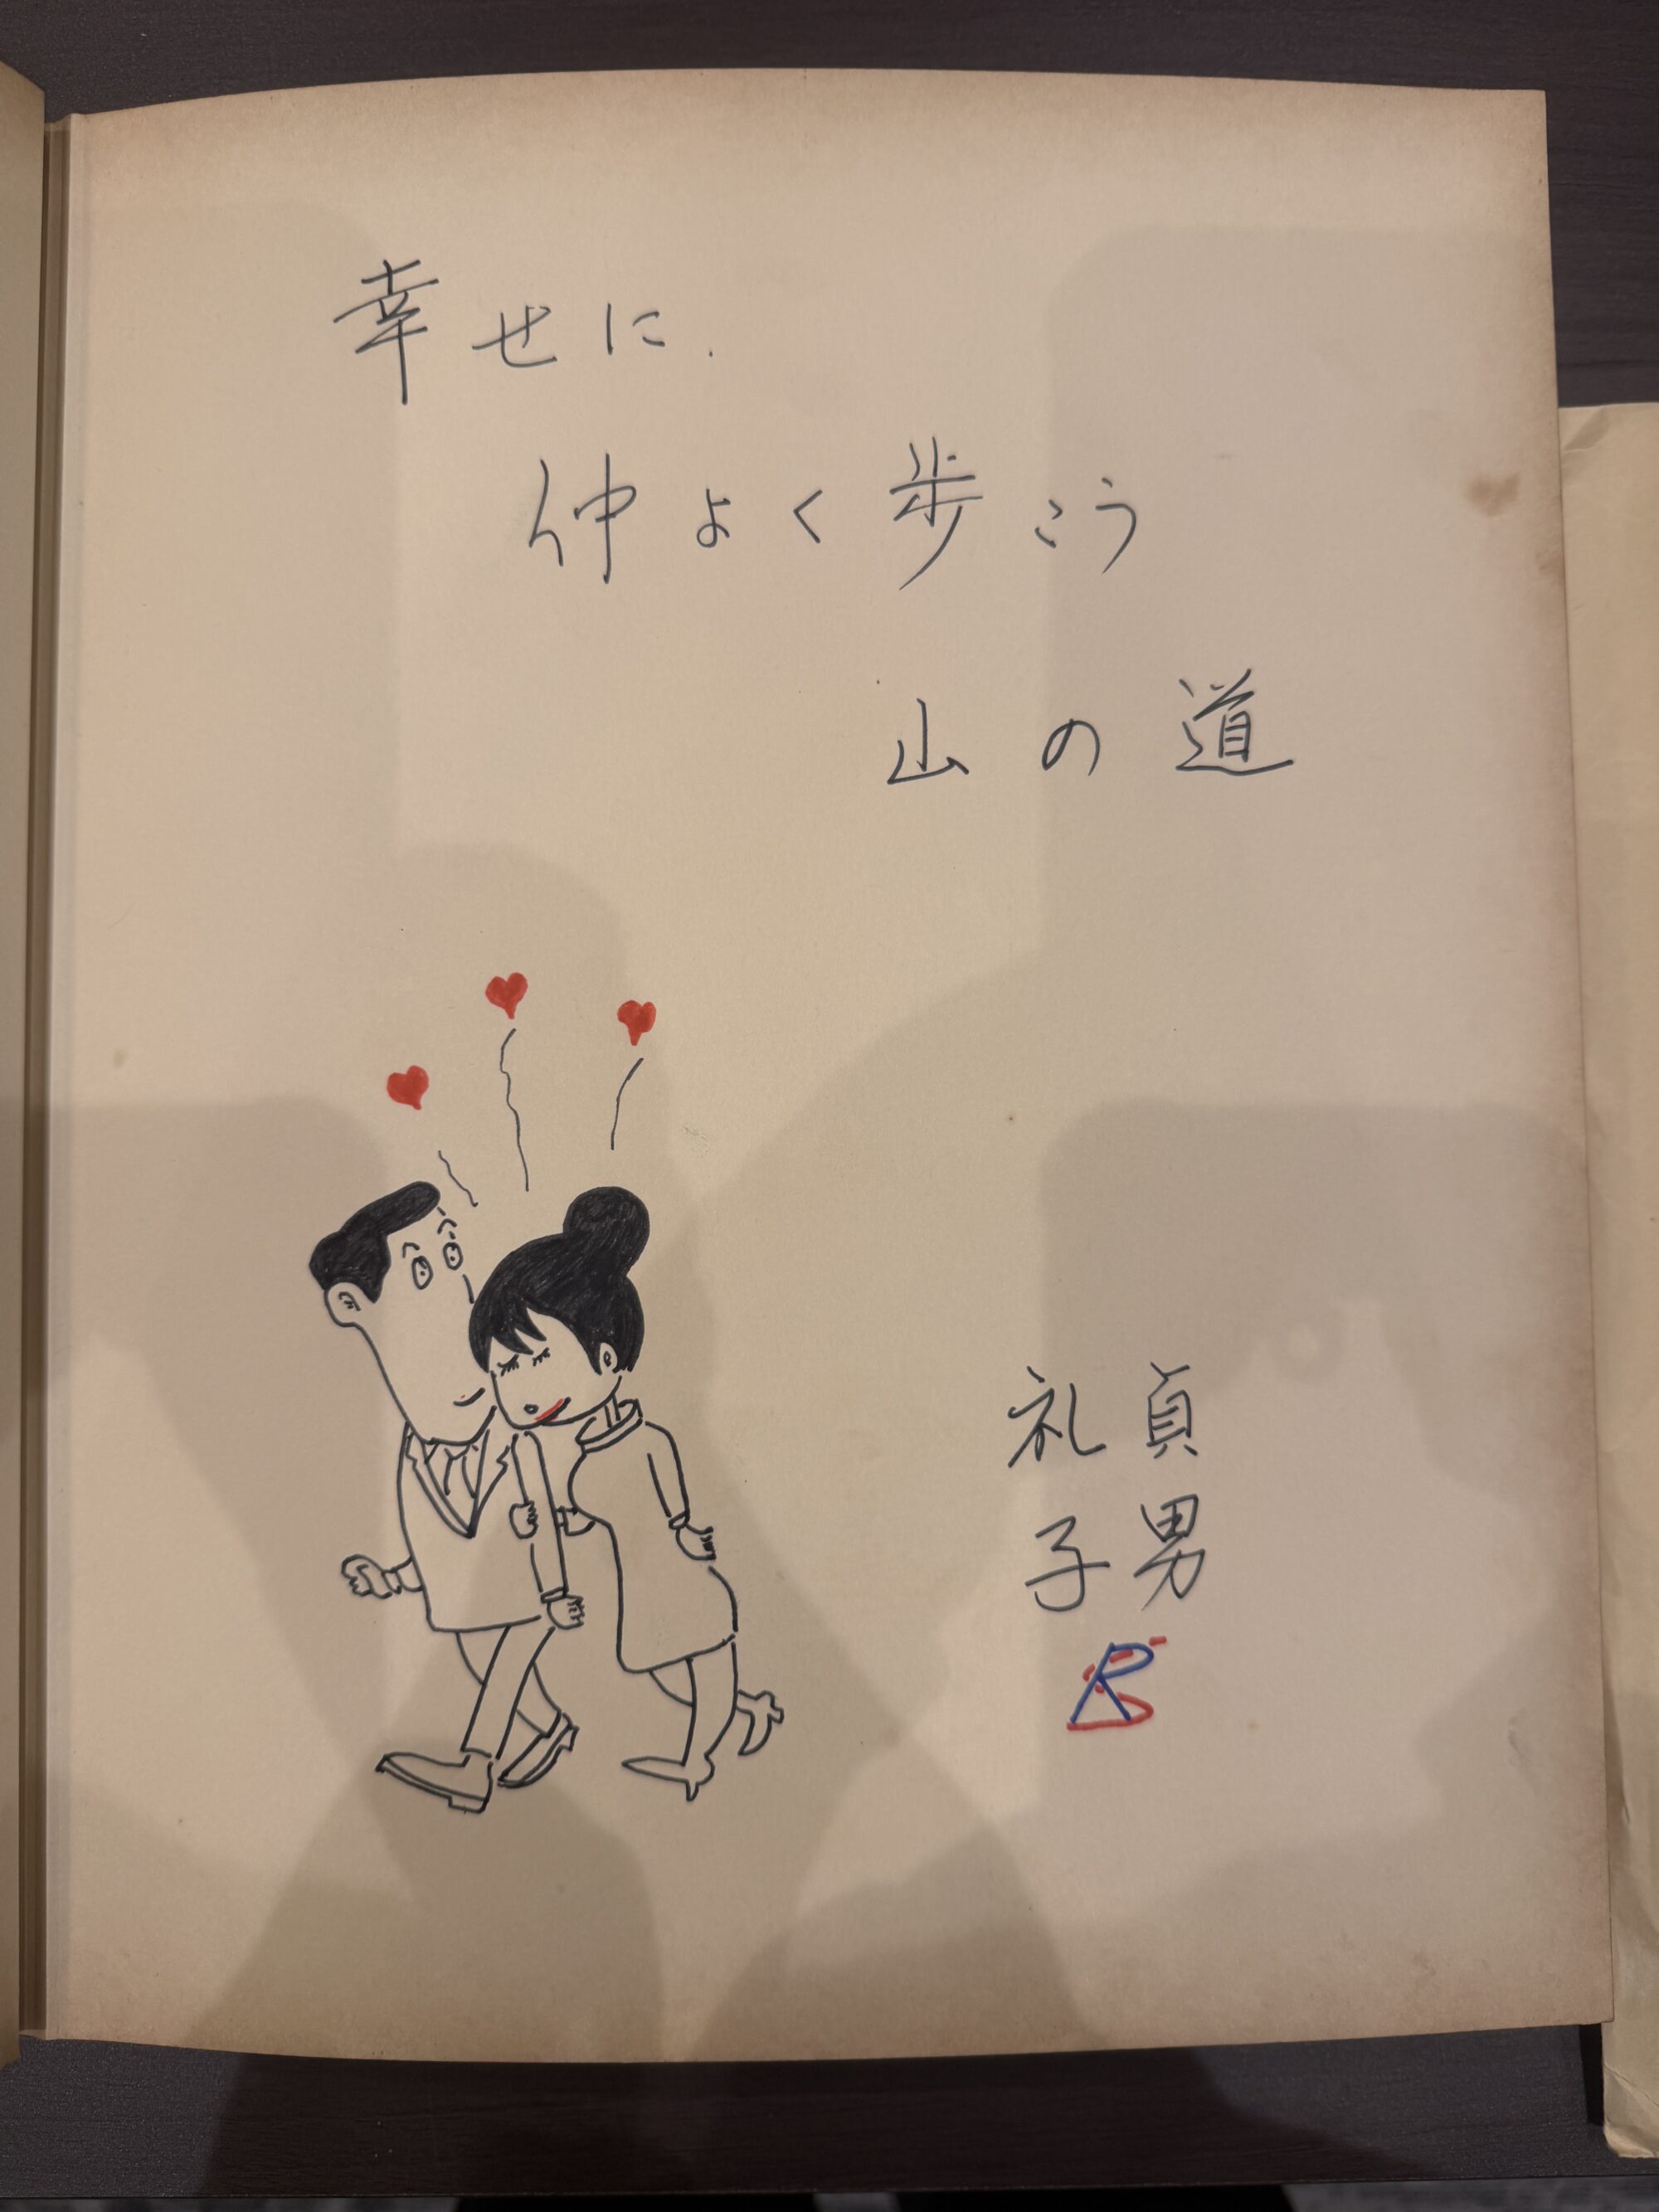 幸せに.
仲よく歩こう
山の道
貞男
礼子
RS